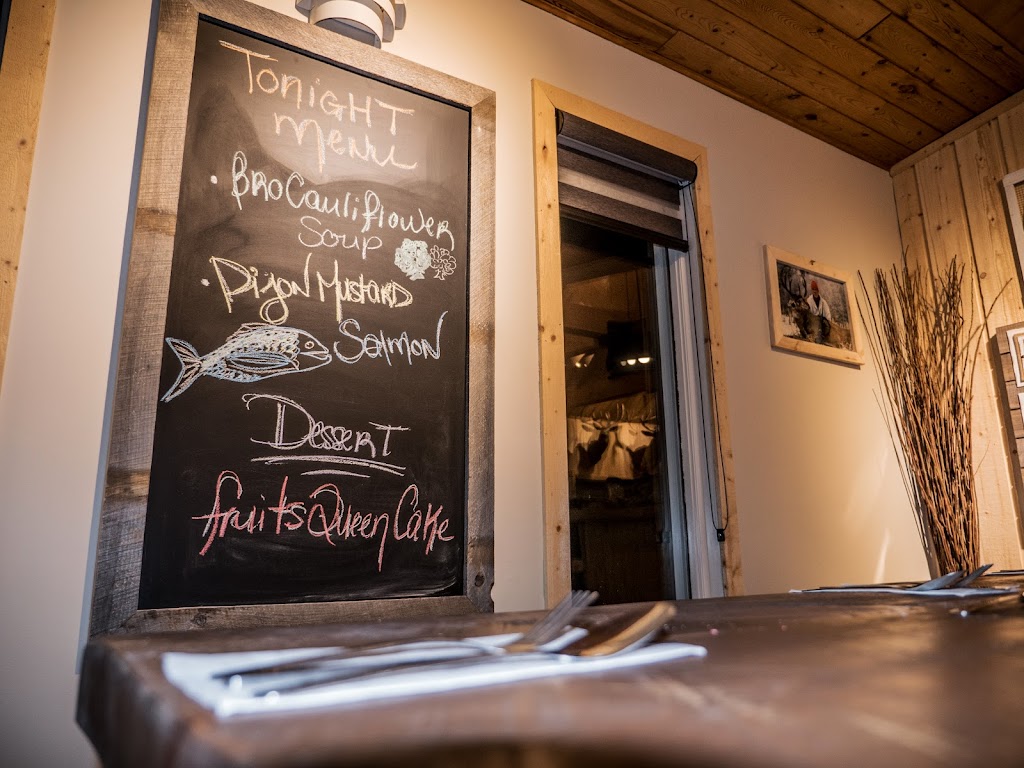 Tonight
Menu
· BroCauliflower
Soup
· Dijon Mustard
Salmon
Dessert
fruits Queen Cake